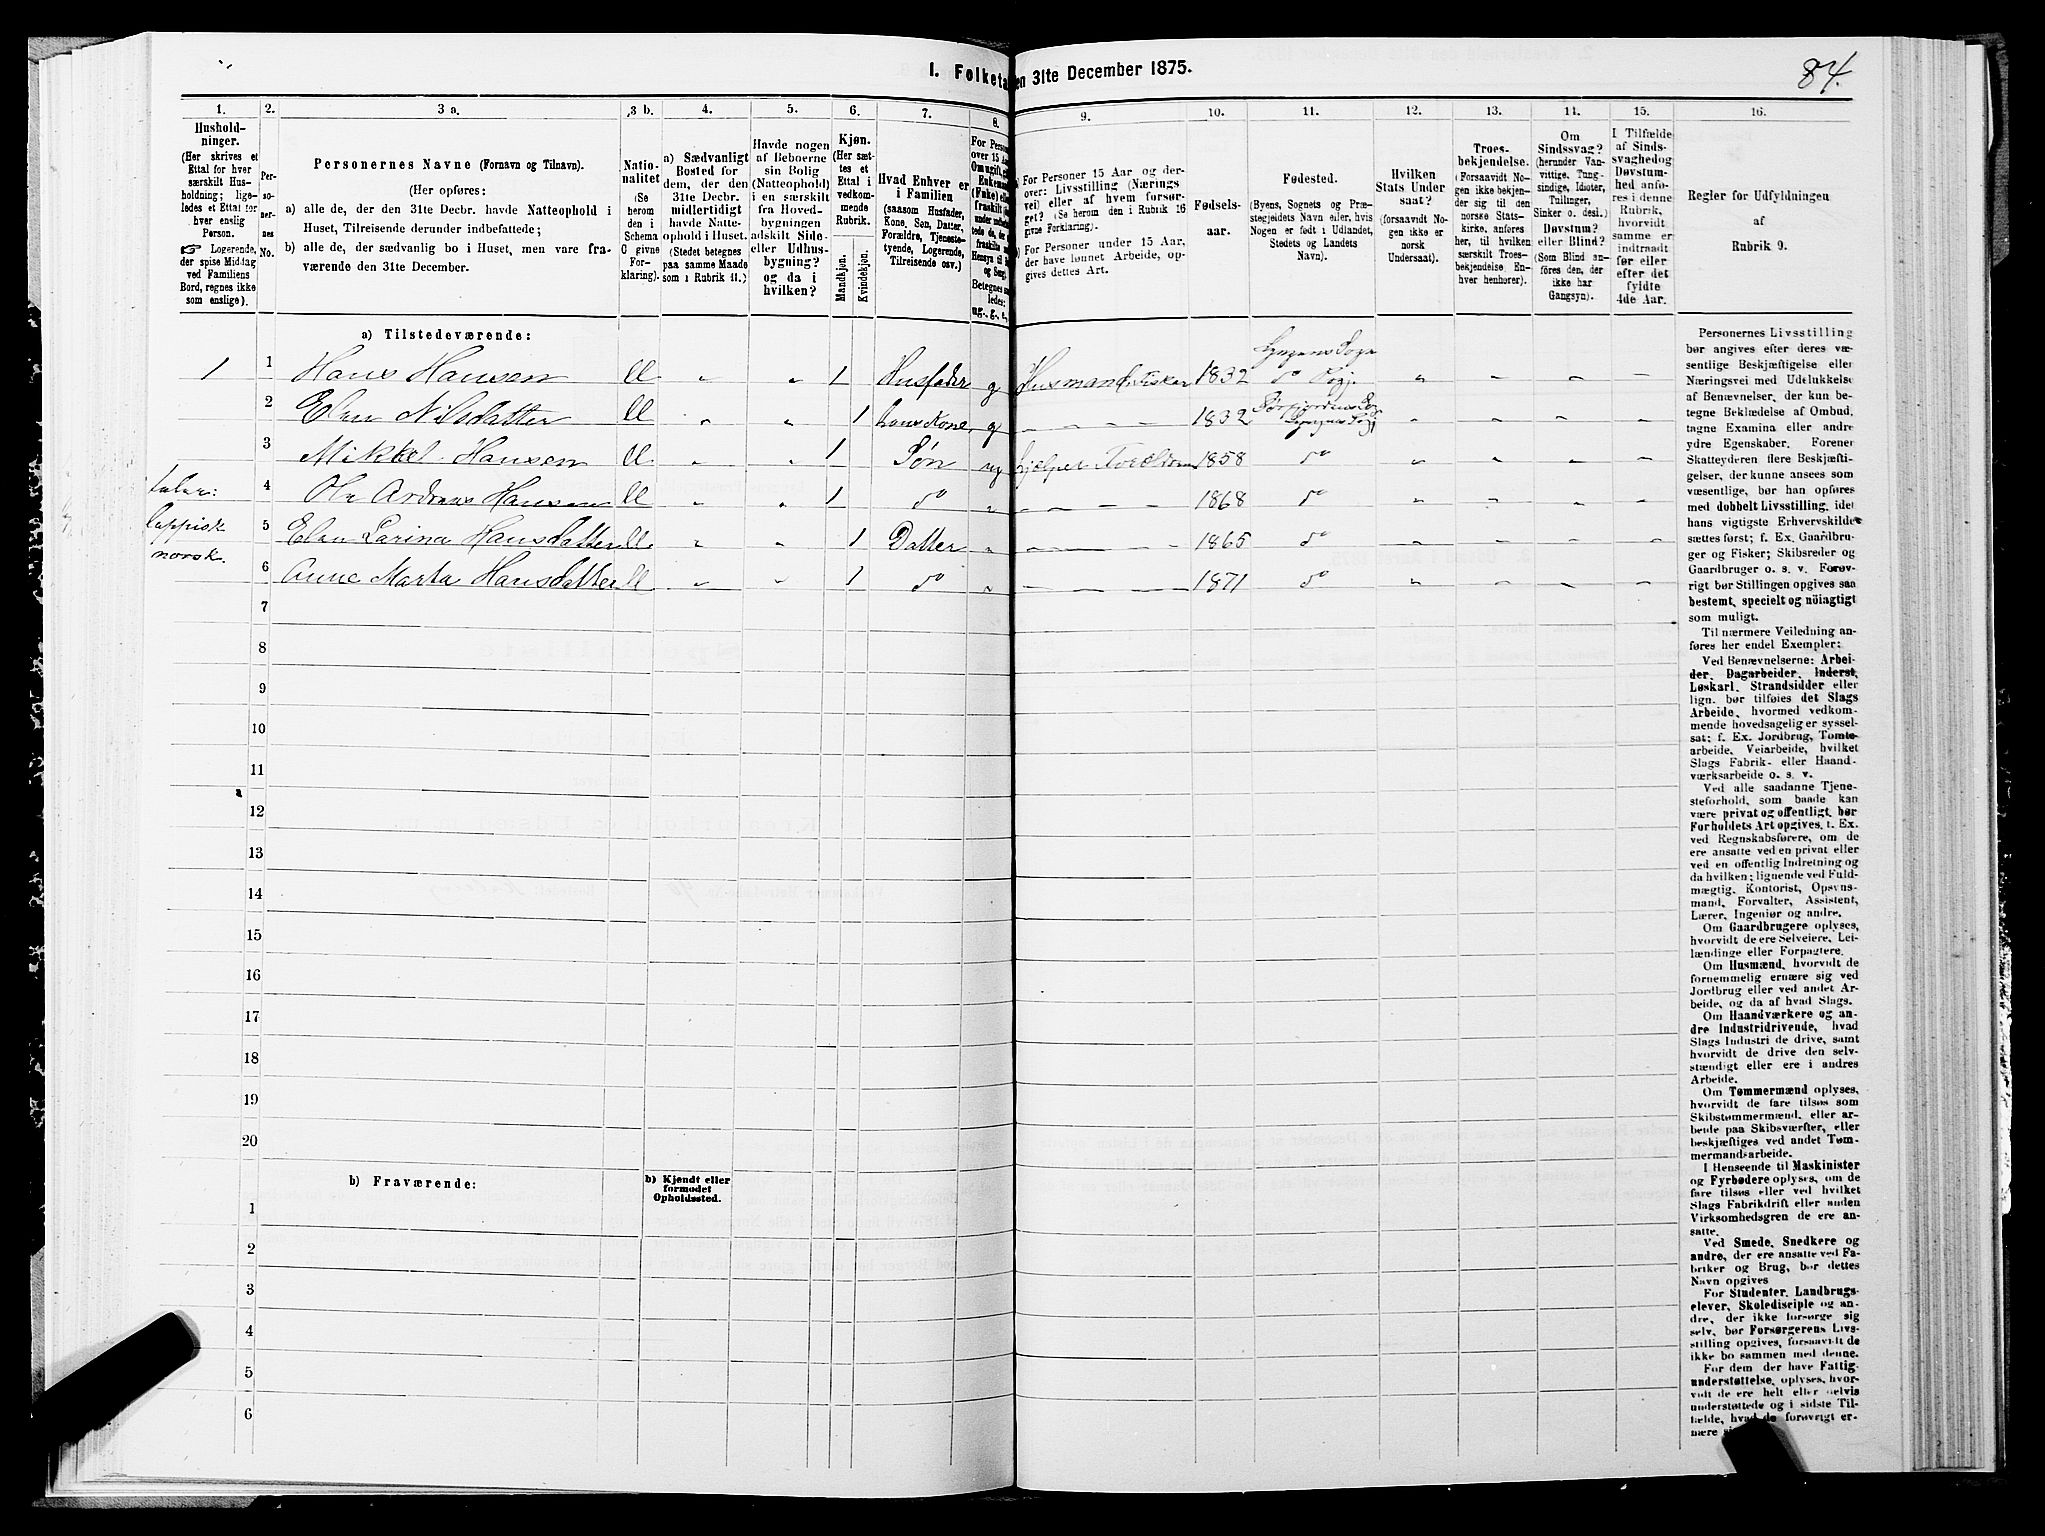 I. Folketæ
en 31te December 1875.
84.
1.
2.
3 a.
3 b.
4.
5.
6.
7.
8.
9.
10.
11.
12.
13.
14.
15.
16.
Hushold-
ninger.
(Her skrives et
Ettal for hver
særskilt Hus-
holdning; lige-
ledes et Ettal for
hver enslig
Person.
☞ Logerende,
der spise Middag
ved Familiens
Bord, regnes ikke
som enslige).
Per-
so-
ner-
nes
No.
Personernes Navne (Fornavn og Tilnavn).
(Her opføres:
a) alle de, der den 31te Decbr. havde Natteophold i
Huset, Tilreisende derunder indbefattede;
b) alle de, der sædvanlig bo i Huset, men vare fra-
værende den 31te December.
Natio-
nalitet
(Se
herom
den i
Schema
O givne
For-
klaring).
a) Sædvanligt
Bosted for
dem, der den
31te Decbr.
midlertidigt
havde Natte-
ophold i Huset.
(Stedet betegnes
paa samme Maade
som i Rubrik 11.)
Havde nogen
af Beboerne
sin Bolig
(Natteophold)
i en særskilt
fra Hoved-
bygningen
adskilt Side-
eller Udhus-
bygning?
og da i
hvilken?
Kjøn.
(Her sæt-
tes et
Ettal i
vedkom-
mende
Rubrik.
Mandkjøn.
Kvindekjøn.
Hvad Enhver er
i Familien
(saasom Husfader,
Kone, Søn, Datter,
Forældre, Tjeneste-
tyende, Logerende,
Tilreisende osv.)
For Persone
over 15 Aar
Hensyn til
og Seng
Betegnes saa
ledes:
ug., g., e.,
For Personer 15 Aar og der-
over: Livsstilling (Nærings
vei) eller af hvem forsør-
get? (Se herom den i Rubrik 16
givne Forklaring).
For Personer under 15 Aar,
der have lønnet Arbeide, op-
gives dettes Art.
Fødsels-
aar.
Fødested.
(Byens, Sognets og Præ-
stegjeldets Navn eller, hvis
Nogen er født i Udlandet,
Stedets og Landets
Navn).
Hvilken
Stats Under
saat?
(forsaavidt No-
gen ikke er
norsk
Undersaat).
Troes-
bekjendelse.
(Forsaavidt No-
gen ikke bekjen-
der sig til den
norske Stats-
kirke, anføres
her, til hvilken
særskilt Troes-
bekjendelse En-
hver henhører).
Om
Sindssvag?
(herunder Van-
vittige, Tung-
sindige, Idioter,
Tullinger,
Sinker o. desl.)
Døvstum?
eller Blind?
(Som Blind an-
føres den, der
ikke har
Gangsyn).
I Tilfælde
af Sinds-
svaghed og
Døvstum-
hed anfø-
res i denne
Rubrik,
hvorvidt
samme er
indtraadt
før eller
efter det
fyldte
4de Aar.
Regler for Udfyldningen
af
Rubrik 9.
a) Tilstedeværende:
Lyngens Sogn
1 1 Hans Hansen M „ „ 1 Husfader g Husmand, Fisker 1832 do Prgj. „ — — —
2 Elen Nilsdatter M „ „ 1 hans Kone g — — — 1832
3 Mikkel Hansen M „ „ 1 Søn ug hjælper 1858 do „ — — —
taler: 4 Ole Andreas Hansen M „ „ 1 do „ — — — 1868 do „ — — —
lappisk 5 Elen Larina Hansdatter M. „ „ 1 Datter „ — — — 1865 do „ — — —
norsk. 6 Anne Marta Hansdatter M „ „ 1 do „ — — — 1871 do „ — — —
7
8
9
10
11
12
13
14
15
16
17
18
19
20
b) Fraværende:
b) Kjendt eller
formodet
Opholdssted.
1
2
3
4
5
6
Personernes Livsstilling
bør angives efter deres væ-
sentlige Beskjæftigelse eller
Næringsvei med Udelukkelse
af Benævnelser, der kun be-
tegne Beklædelse af Ombud,
tagne Examina eller andre
ydre Egenskaber. Forener
Skatteyderen flere Beskjæfti-
gelser, der kunne ansees som
væsentlige, bør han opføres
med dobbelt Livsstilling, idet
hans vigtigste Erhvervskilde
sættes først; f. Ex. Gaardbru-
ger og Fisker; Skibsreder og
Gaardbruger o. s. v. Forøv-
rigt bør Stillingen opgives saa
bestemt, specielt og nöiagtigt
som muligt.
Til nærmere Veiledning an-
føres her endel Exempler:
Ved Benævnelserne: Arbei-
der, Dagarbeider, Inderst,
Løskarl, Strandsidder eller
lign. bør tilføies det Slags
Arbeide, hvormed vedkom-
mende hovedsagelig er syssel-
sat; f. Ex. Jordbrug, Tomte-
arbeide, Veiarbeide, hvilket
Slags Fabrik- eller Haand-
værksarbeide o. s. v.
Ved alle saadanne Tjene-
steforhold, som baade kan
være privat og offentligt, bør
Forholdets Art opgives, t. Ex.
ved Regnskabsførere, om de
ere ansatte ved en privat eller
ved en offentlig Indretning og
da hvilken; lignende ved Fuld-
mægtig, Kontorist, Opsyns-
mand, Forvalter, Assistent,
Lærer, Ingeniør og andre.
Om Gaardbrugere oplyses,
hvorvidt de ere Selveiere, Lei-
lændinge eller Forpagtere.
Om Husmænd, hvorvidt de
fornemmelig ernære sig ved
Jordbrug eller ved andet Ar-
beide, og da af hvad Slags.
Om Haandværkere og an-
dre Industridrivende, hvad
Slags Industri de drive, samt
hvorvidt de drive den selv-
stændigt eller ere i andres
Arbeide.
Om Tømmermænd oplyses,
hvorvidt de fare tilsøs som
Skibstømmermænd, eller ar-
beide paa Skibsværfter, eller
beskjæftiges ved andet Tøm-
mermandsarbeide.
I Henseende til Maskinister
og Fyrbødere oplyses, om de
fare tilsøs eller ved hvilket
Slags Fabrikdrift eller anden
Virksomhedsgren de ere an-
satte.
Ved Smede, Snedkere og
andre, der ere ansatte ved Fa-
briker og Brug, bør dettes
Navn opgives
For Studenter, Landbrugs-
elever, Skoledisciple og an-
dre, der ikke forsørge sig
selv, bør Forsørgerens Livs-
stilling opgives, forsaavidt de
ikke bo sammen med denne.
For dem der have Fattig-
understøttelse, oplyses, hvor-
vidt de ere helt eller delvis
understøttede og i sidste Til-
fælde, hvad de forøvrigt er-
nære